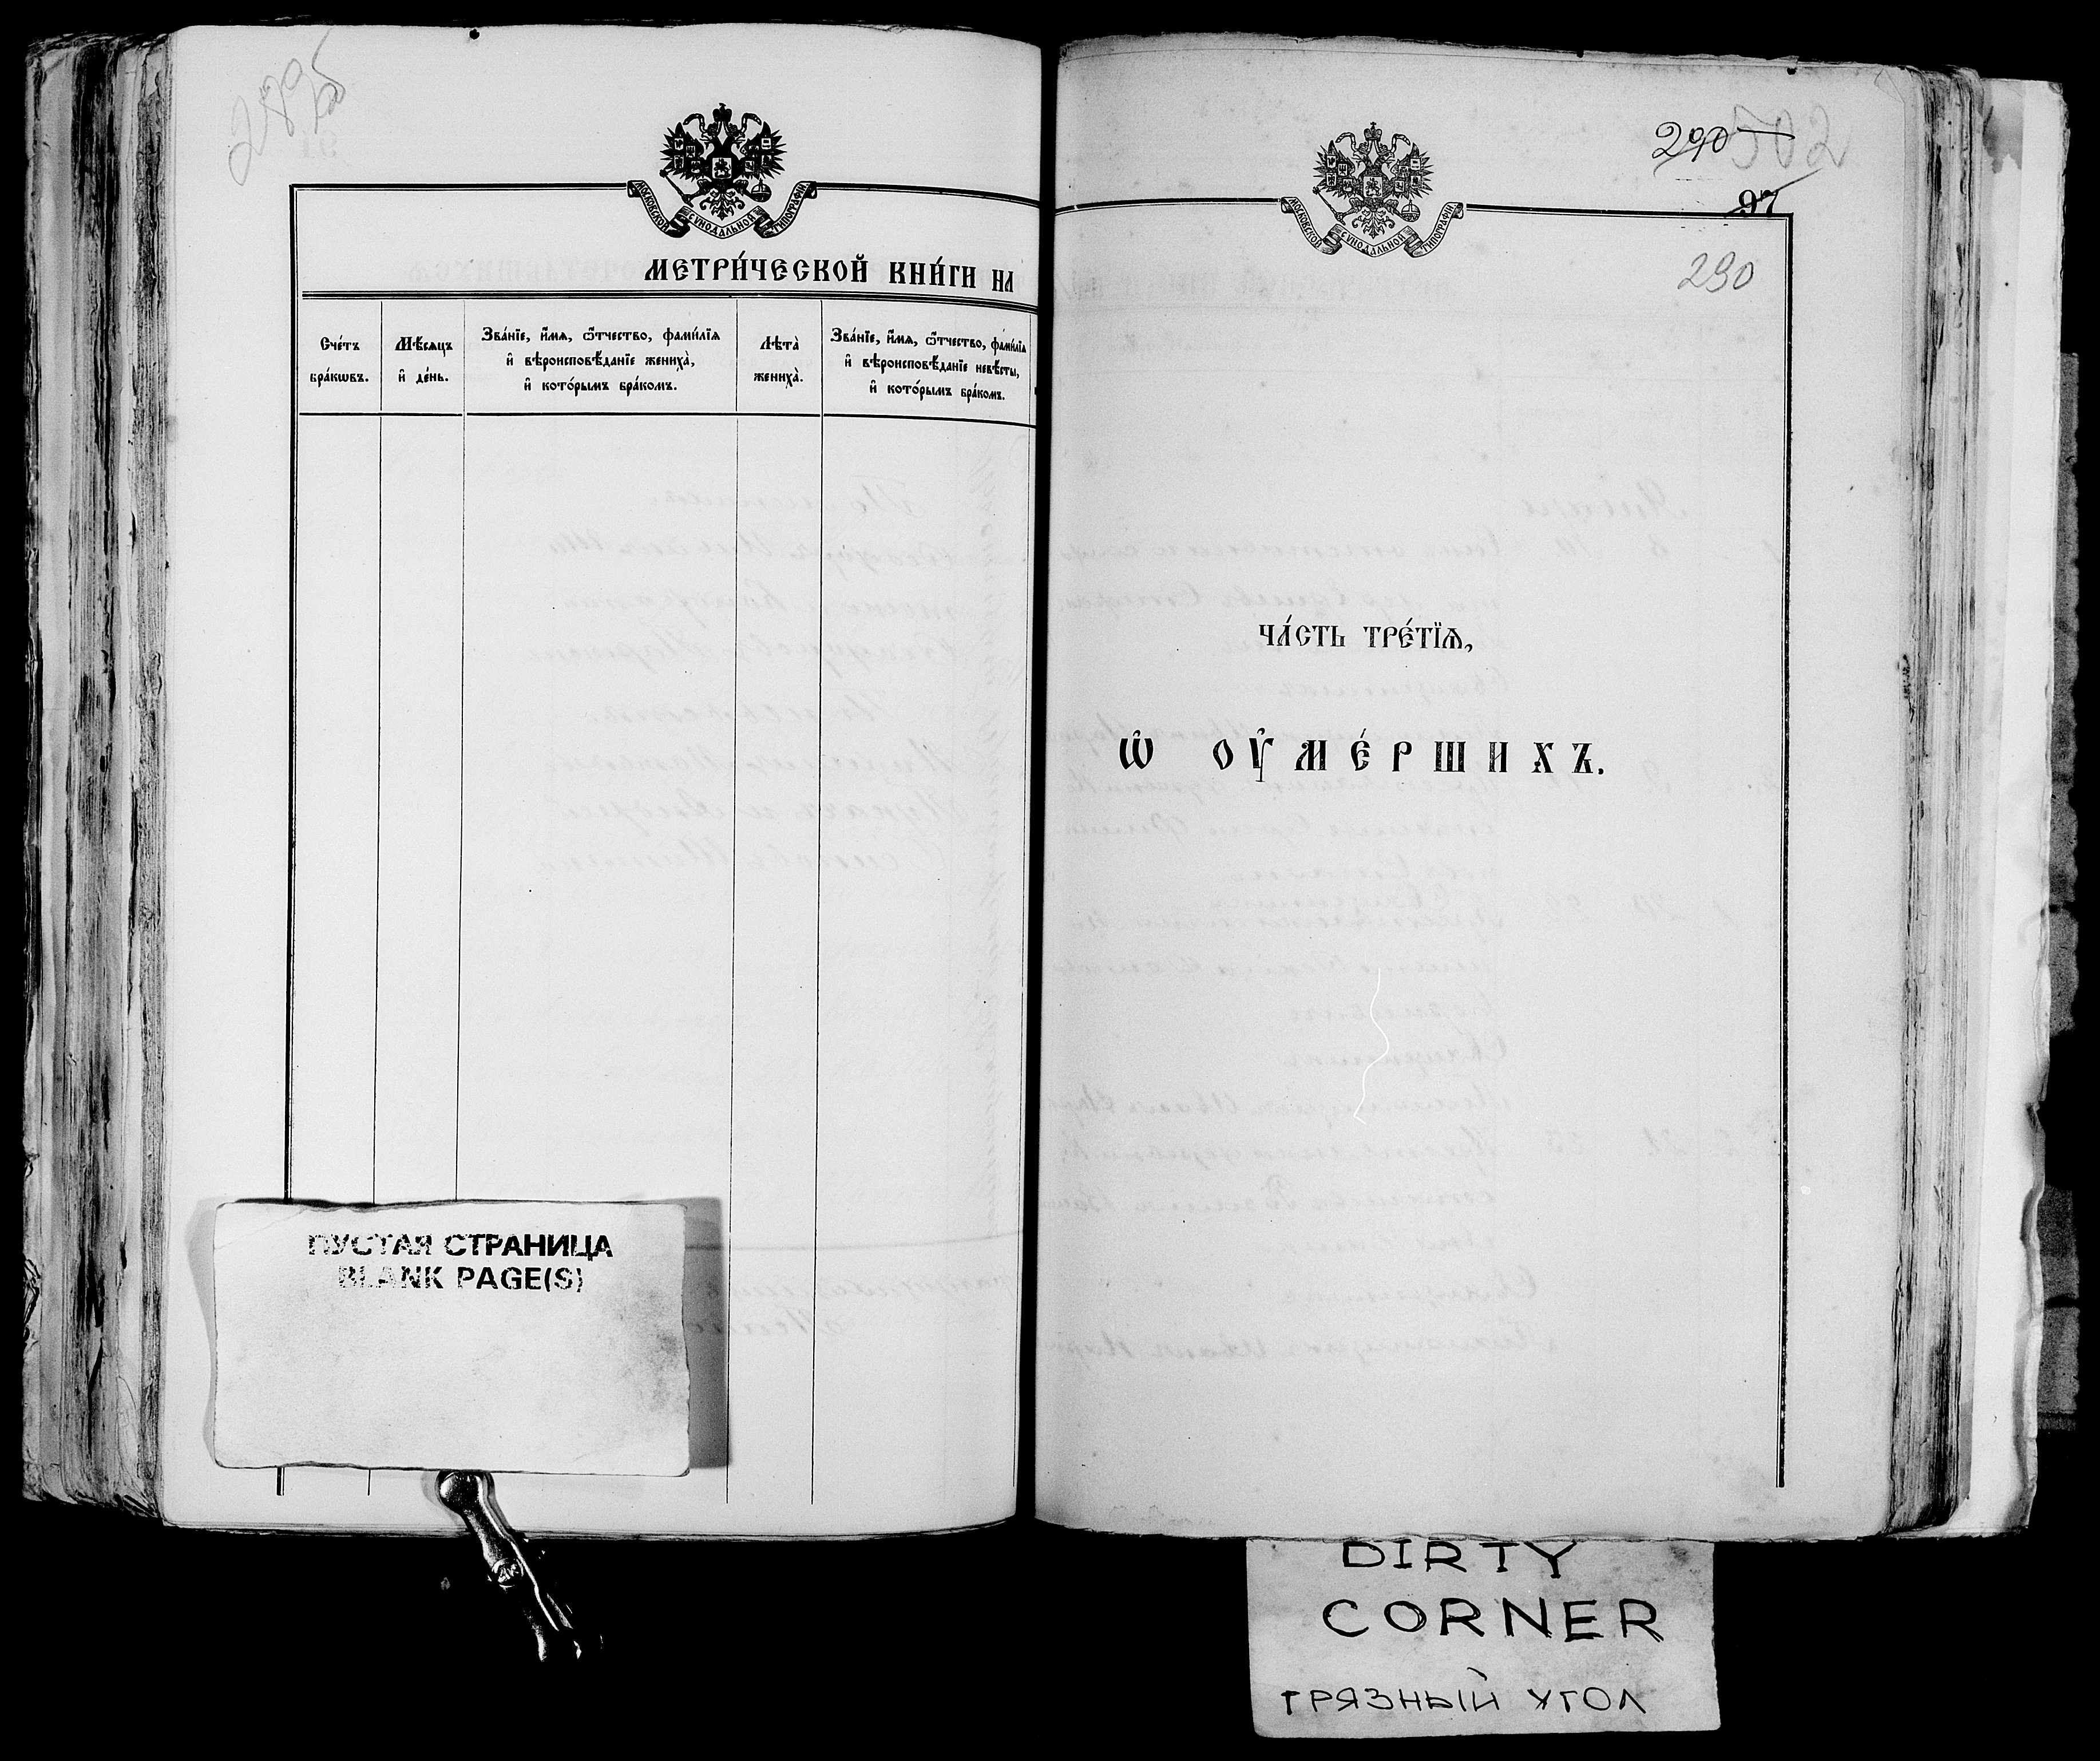 МОСКОВСКОЙ СѴНОДАЛЬНОЙ ТИПОГРАФІИ
МЕТРИ́ЧЕСКОЙ КНИ́ГИ НА
Сче́тъ
бра́кѡвъ.
Мѣ́сѧцъ
и҆ де́нь.
Зва́нїе, и҆́мѧ, ѻ҆́тчество, фами́лїѧ
и҆ вѣроисповѣ́данїе жениха̀,
и҆ кото́рымъ бра́комъ.
Лѣта̀
жениха̀.
Зва́нїе, и҆́мѧ, ѻ҆́тчество, фами́лїѧ
и҆ вѣроисповѣ́данїе невѣ́сты,
и҆ кото́рымъ бра́комъ.
ПУСТАЯ СТРАНИЦА
BLANK PAGE(S)
290
502
97
МОСКОВСКОЙ СѴНОДАЛЬНОЙ ТИПОГРАФІИ
290
ЧА́СТЬ ТРЕ́ТЇѦ,
Ѡ҆ ОУ҆МЕ́РШИХЪ.
DIRTY
CORNER
ГРЯЗНЫЙ УГОЛ